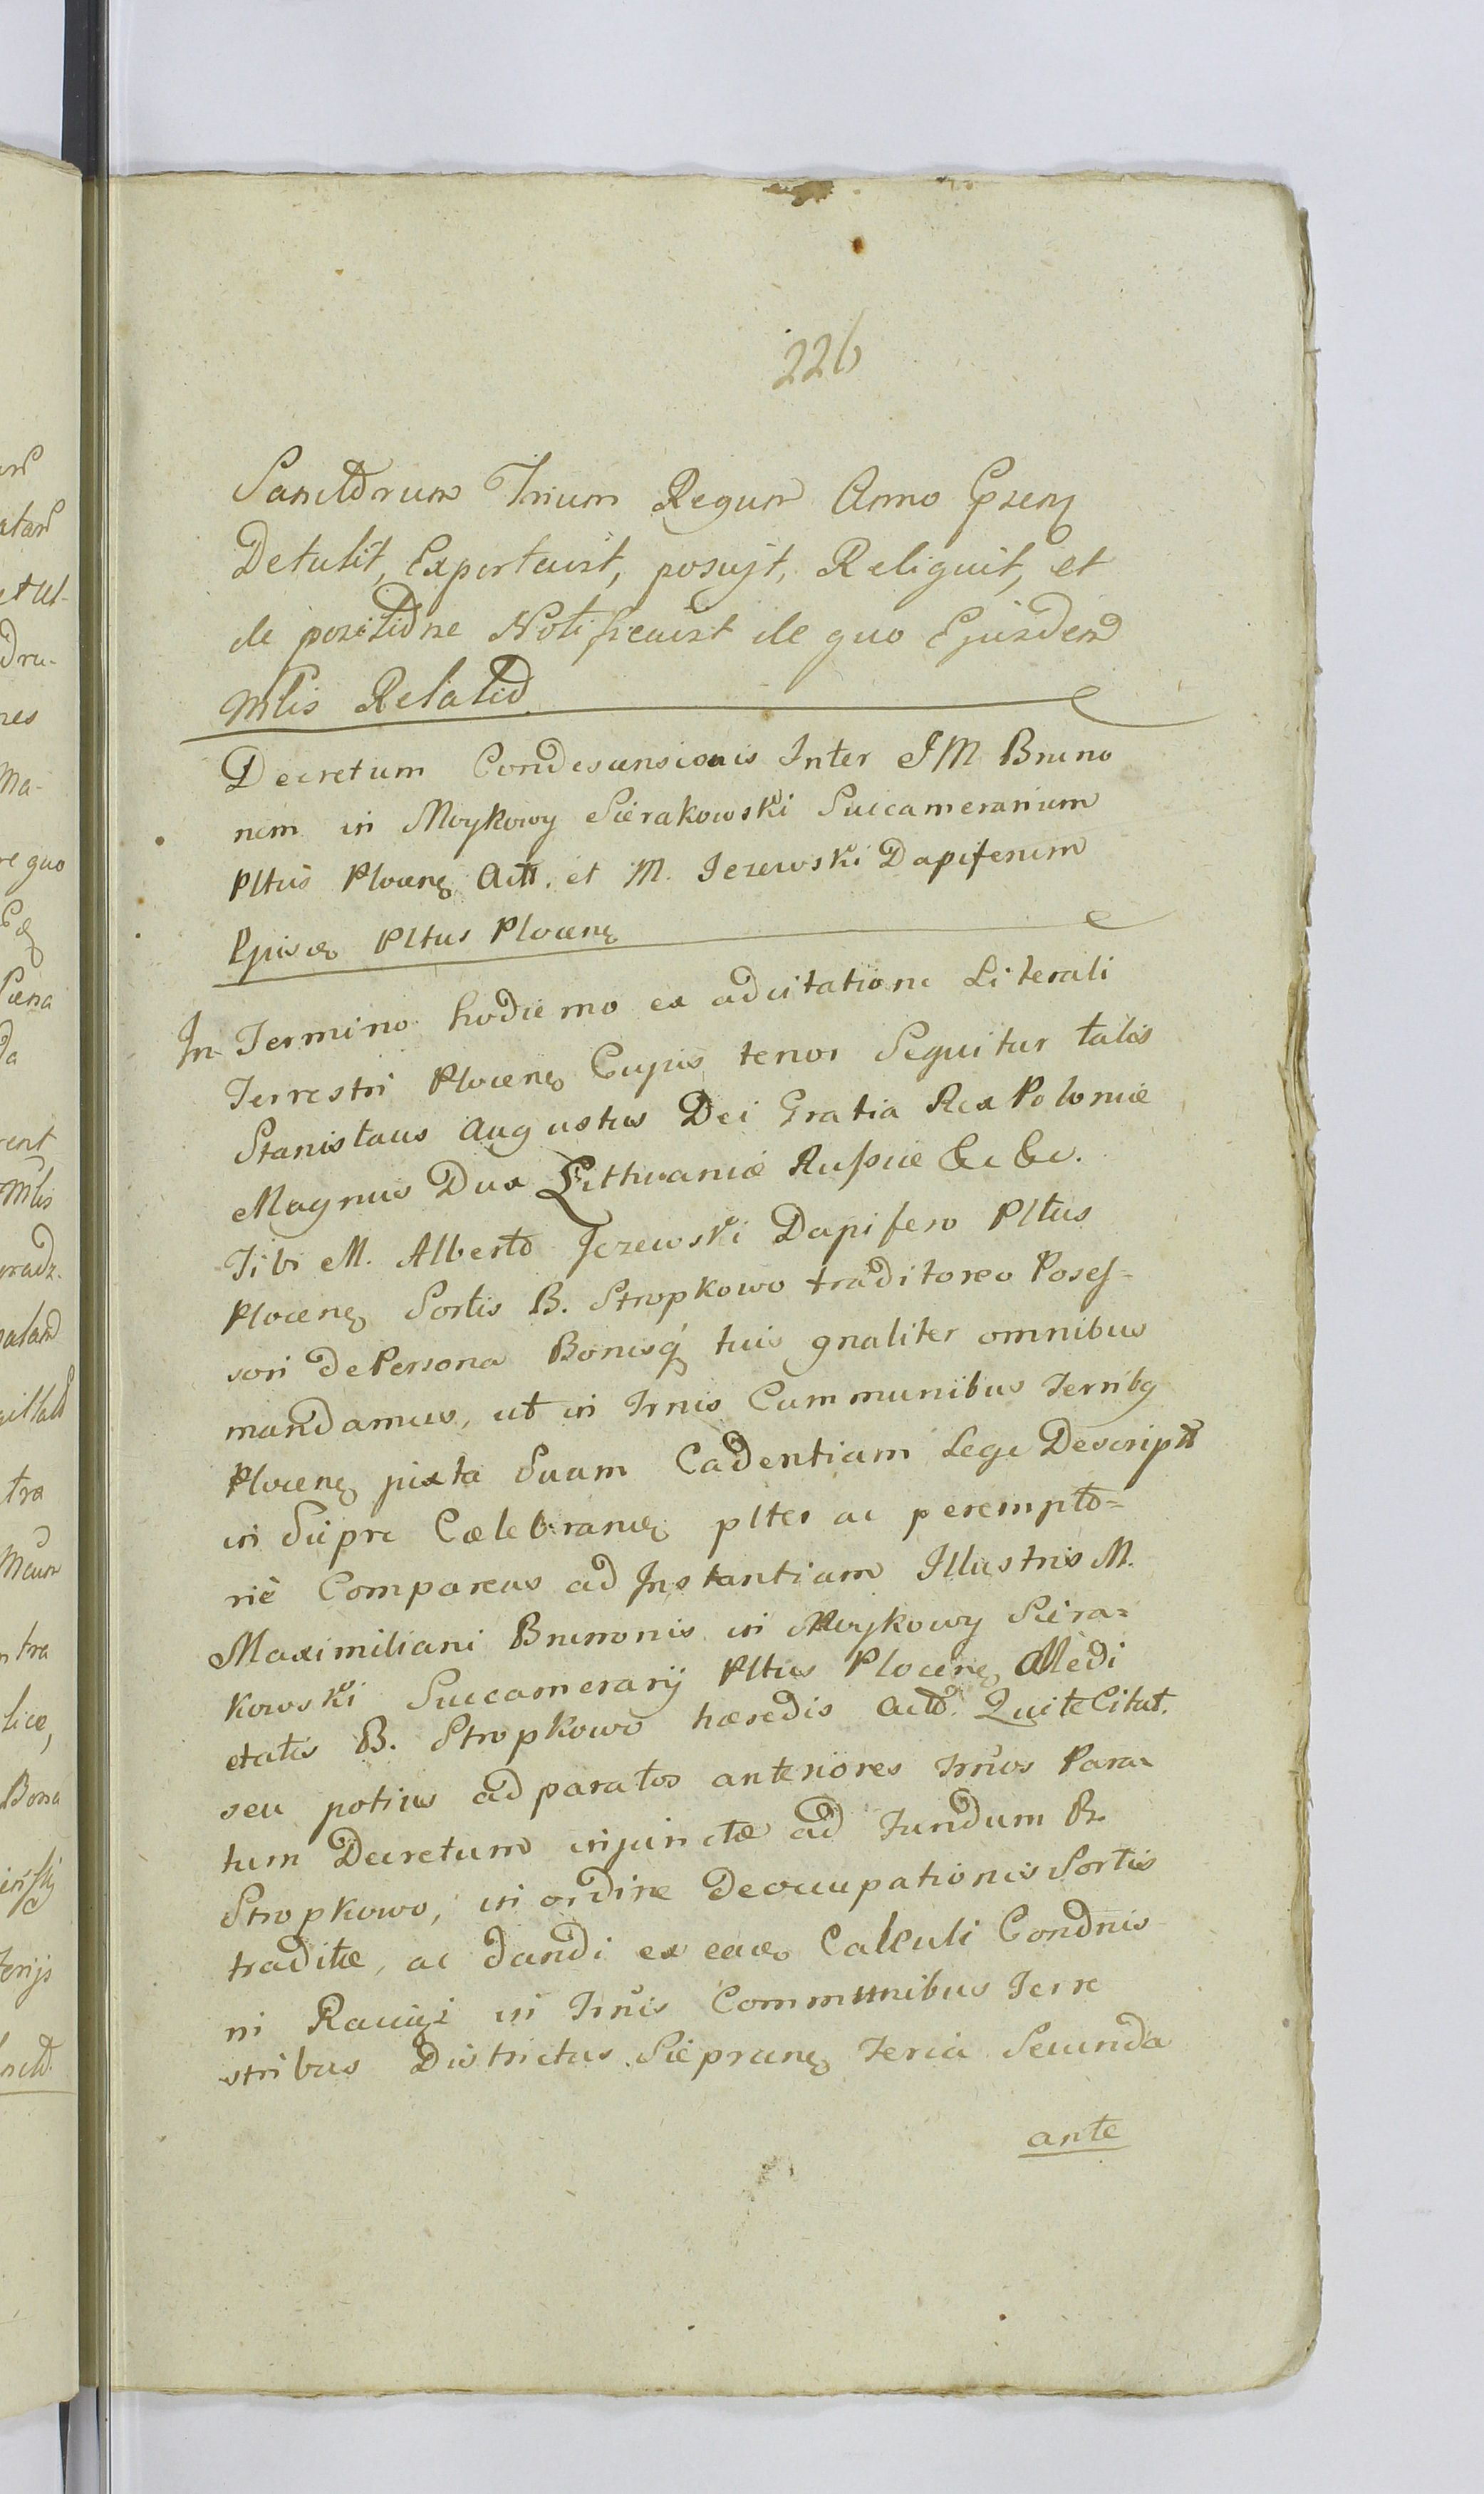 226
Sanctorum Trium Regum Anno Prẽnꝫ
Detulit, Exportavit, posuyt, Reliquit, et
de positione Notificavit de quo Ejusdem
Mlis Relatio
Decretum Condescensionis Inter JM Bruno
nem in Mnykowy Sierakowski Succamerarium
Pltus Plocenꝫ Act. et M. Jezewski Dapiferum
Ejusdꝫ Pltus Plocenꝫ
In Termino hodierno ex adcitatione Literali
Terrestri Plocenꝫ Cujus tenor Sequitur talis
Stanislaus Augustus Dei Gratia Rex Poloniæ
Magnus Dux Lithvaniæ Russiæ &c &c.
Tibi M. Alberto Jezewski Dapifero Pltus
Plocenꝫ Sortis B. Stropkowo traditoreo Poses-
sori de Persona Bonisq́ tuis gnaliter omnibus
mandamus, ut in Trnis Cummunibus Terribꝫ
Plocenꝫ juxta Suam Cadentiam Lege Descript
in Siepre Cælebranꝫ plter ac perempto=
riè Compareas ad Instantiam Illustris M.
Maximiliani Brunonis in Mnykowy Siera=
kowski Succamerarij Pltus Plocenꝫ Medi
etatis B. Stropkowo hæredis Act. Qui te Citat.
seu potius ad paratos anteriores Trnos Para
tum Decretum injunctæ ad Fundum B.
Stropkowo, in ordine Deoccupationis Sortis
traditæ, ac dandi ex eaꝫ Calculi Condnis
ni in Trnis Communibus Terre
stribus Districtus Sieprcenꝫ Feria Secunda
ante